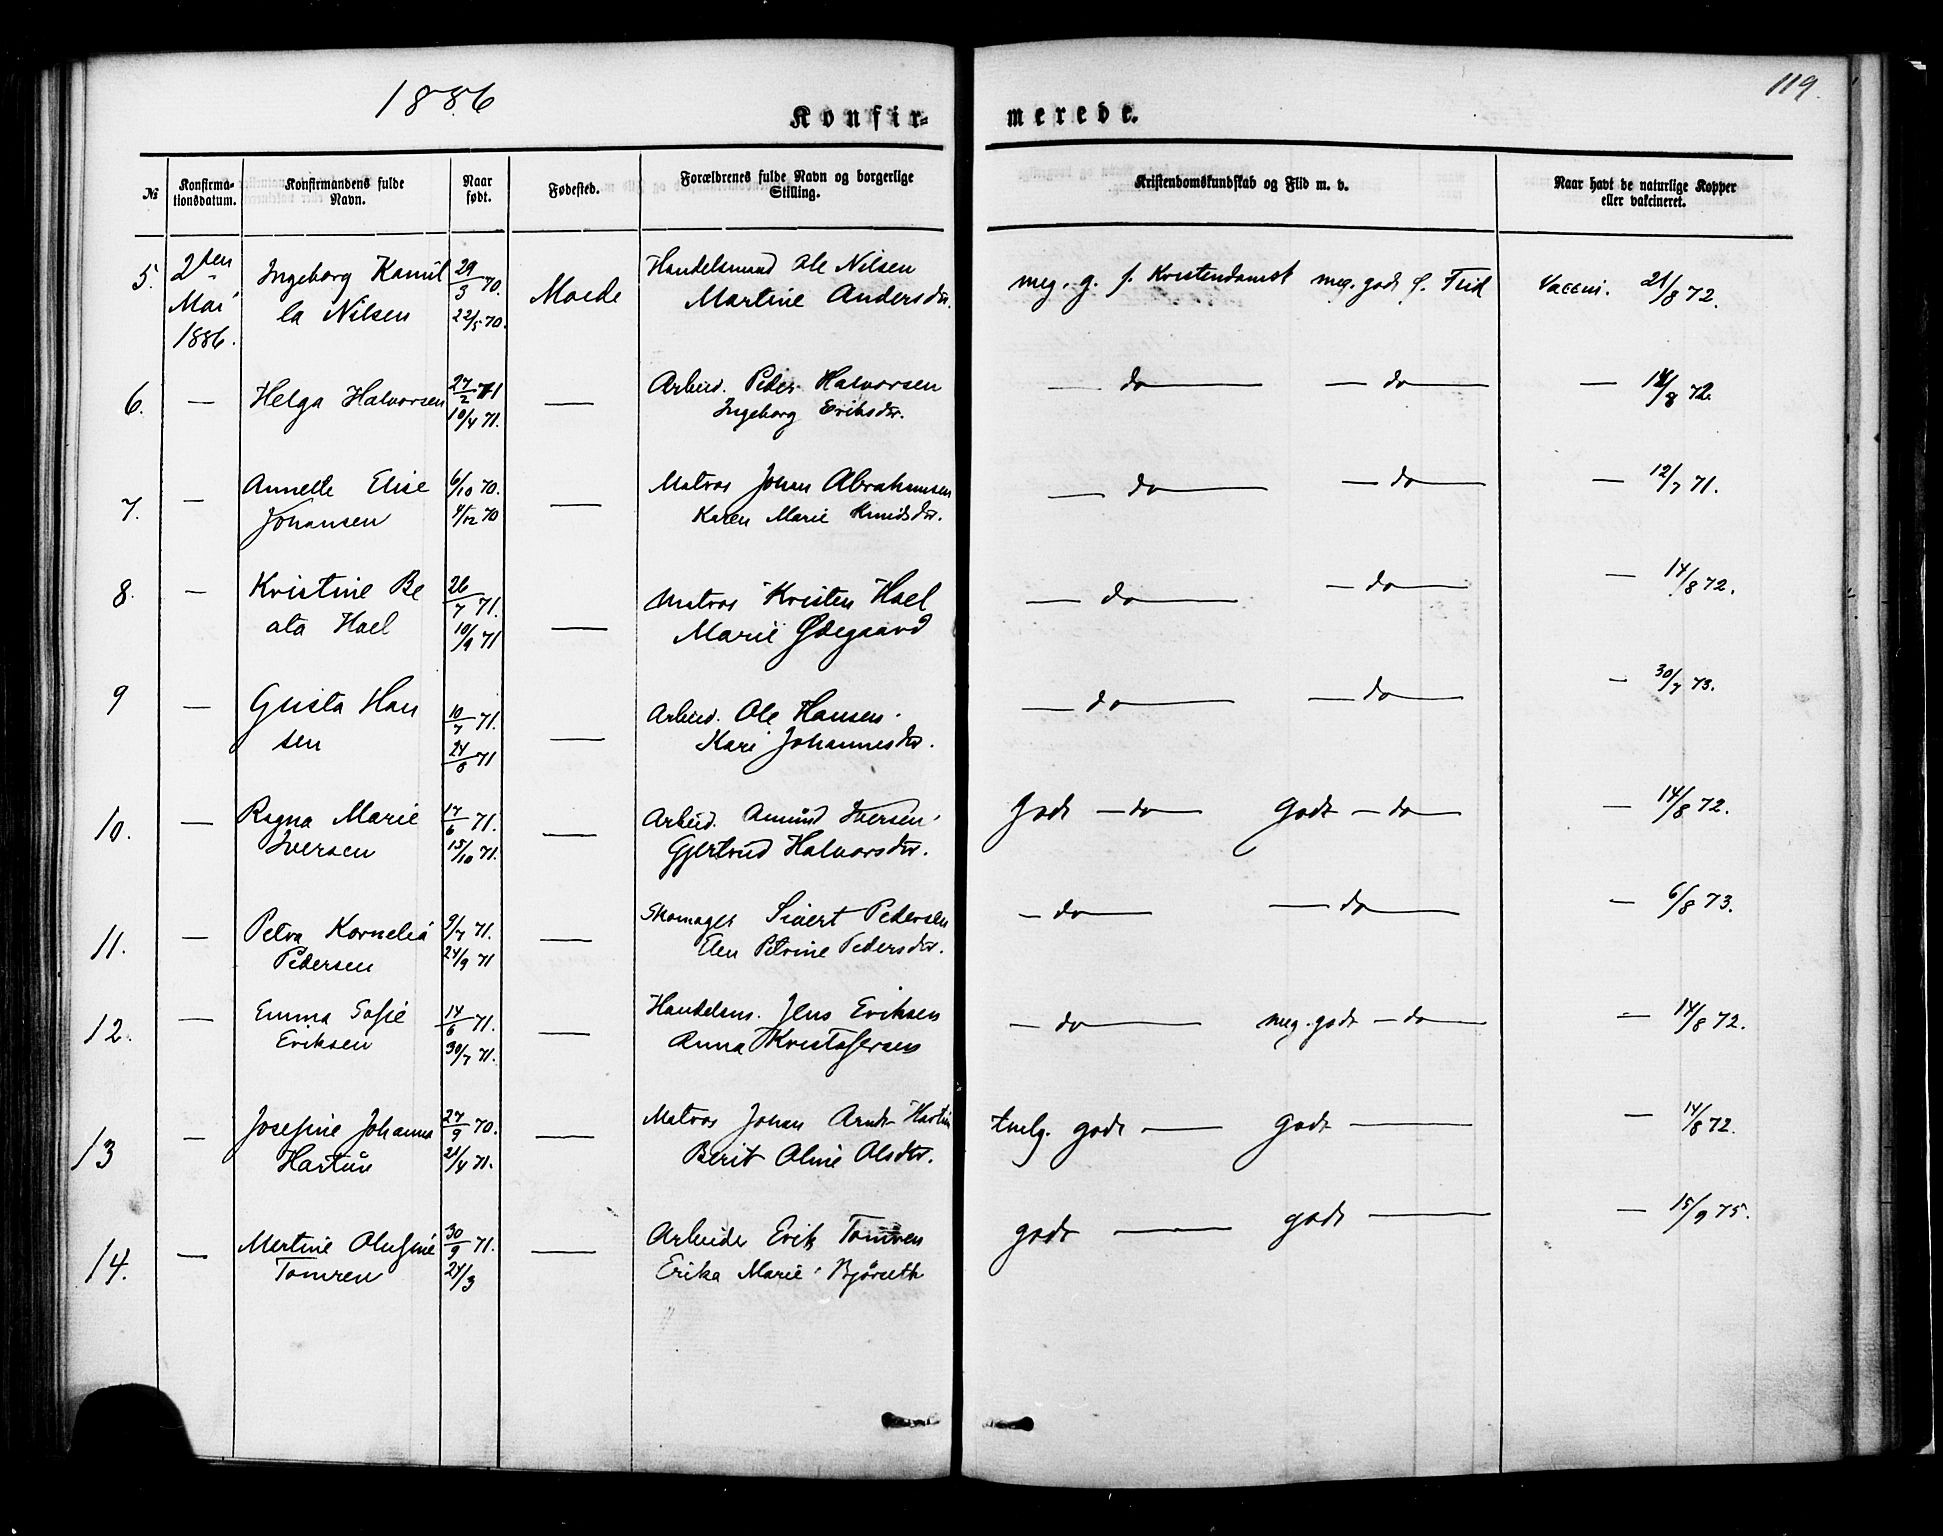 1886
119.
Konfir-
merede.
№
Konfirma-
tionsdatum.
Konfirmandens fulde
Navn.
Naar
født.
Fødested.
Forældrenes fulde Navn og borgerlige
Stilling.
Kristendomskundskab og Flid m. v.
Naar havt de naturlige Kopper
eller vakcineret.
5. 2den Ingeborg Kamil 29/3 70. Molde Handelsmand Ole Nilsen meg. g. f. Kristendomsk meg. godt f. Flid Vaccni. 21/8 72.
Mai la Nilsen 22/5 70. Martine Andersdtr.
1886.
6. — Helga Halvorsen 27/2 71 — Arbeid. Peder Halvorsen — do — — do — — 14/8 72.
10/4 71. Ingeborg Eriksdtr.
7. — Annette Elise 6/10 70. — Matros Johan Abrahamsen — do — — do — — 12/7 71.
Johansen 4/12 70 Karen Marie Knudsdtr.
8. — Kristine Be 26/7 71. — Matros Kristen Hoel — do — — do — — 14/8 72.
ata Hoel 10/9 71 Marie Ødegaard
9 — Gusta Han 10/7 71. — Arbeid. Ole Hansen. — do — — do — — 30/7 73.
sen 24/8 71 Kari Johannesdtr.
10. — Ragna Marie 17/6 71. — Arbeid. Amund Iversen. Godt — do — Godt — do — — 14/8 72.
Iversen 15/10 71. Gjertrud Halvorsdtr.
11. — Petra Kornelia 9/7 71. — Skomager Sivert Pedersen — do — — do — — 6/8 73.
Pedersen 24/9 71 Elen Petrine Pedersdtr.
12. — Emma Sofie 14/6 71. — Handelsm. Jens Eriksen — do — meg. godt — do — — 14/8 72.
Eriksen 30/7 71. Anna Kristofersen
13 — Josefine Johanna 27/9 70. — Matros Johan Arndt tmlg. godt — Godt — — 14/8 72.
21/4 71. Berit Oline Olsdtr.
14. — Mertine Olufine 30/9 71. — Arbeider Erik Tomren godt — godt — — 15/9 75.
Tomren 24/3 Erika Marie Bjørseth